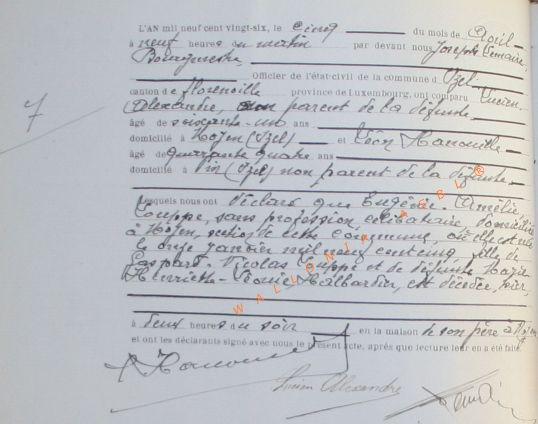 7
L'AN mil neuf cent vingt-six, le cinq du mois de Avril
à neuf heures du matin par devant nous Joseph Lemaire,
Bourgmestre
Officier de l'état-civil de la commune d'Izel
canton de Florenville province de Luxembourg, ont comparu Lucien
Alexandre, non parent de la défunte
âgé de soixante-un ans
domicilié à Moyen (Izel) et Léon Hanouille
âgé de quarante quatre ans
domicilié à Pin (Izel) non parent de la défunte
Lesquels nous ont déclaré que Eugénie-Amélie
Louppe, sans profession, célibataire, domiciliée
à Moyen, section de cette commune, où elle est née
le onze janvier mil neuf cent cinq, fille de
Gaspard-Nicolas Louppe et de défunte Marie
Henriette-Léonie Halbardier, est décédée, hier,
à deux heures du soir en la maison de son père à Moyen
et ont les déclarants signé avec nous le présent acte, après que lecture leur en a été faite.
Hanouille
Lucien Alexandre
WALLONIA ABL®